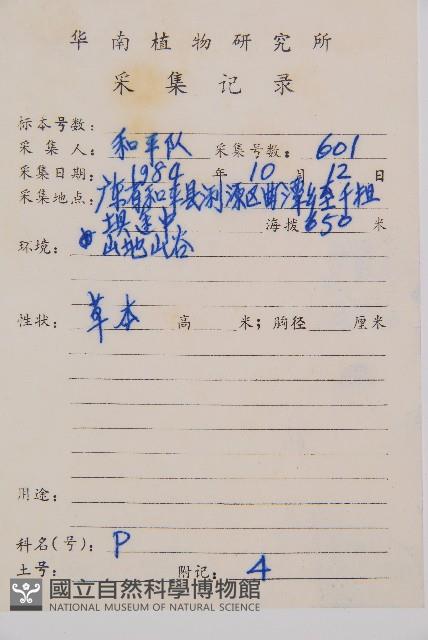 华南植物研究所
采集记录
标本号数：
采集人：和平队 采集号数：601
采集日期：1984年10月12日
采集地点：广东省和平县浰源区曲潭经千担
坝途中 海拔650米
环境：山地山谷
性状：草本 高 米；胸径 厘米
用途：
科名(号)：P
土号： 附记：4
國立自然科學博物館
NATIONAL MUSEUM OF NATURAL SCIENCE